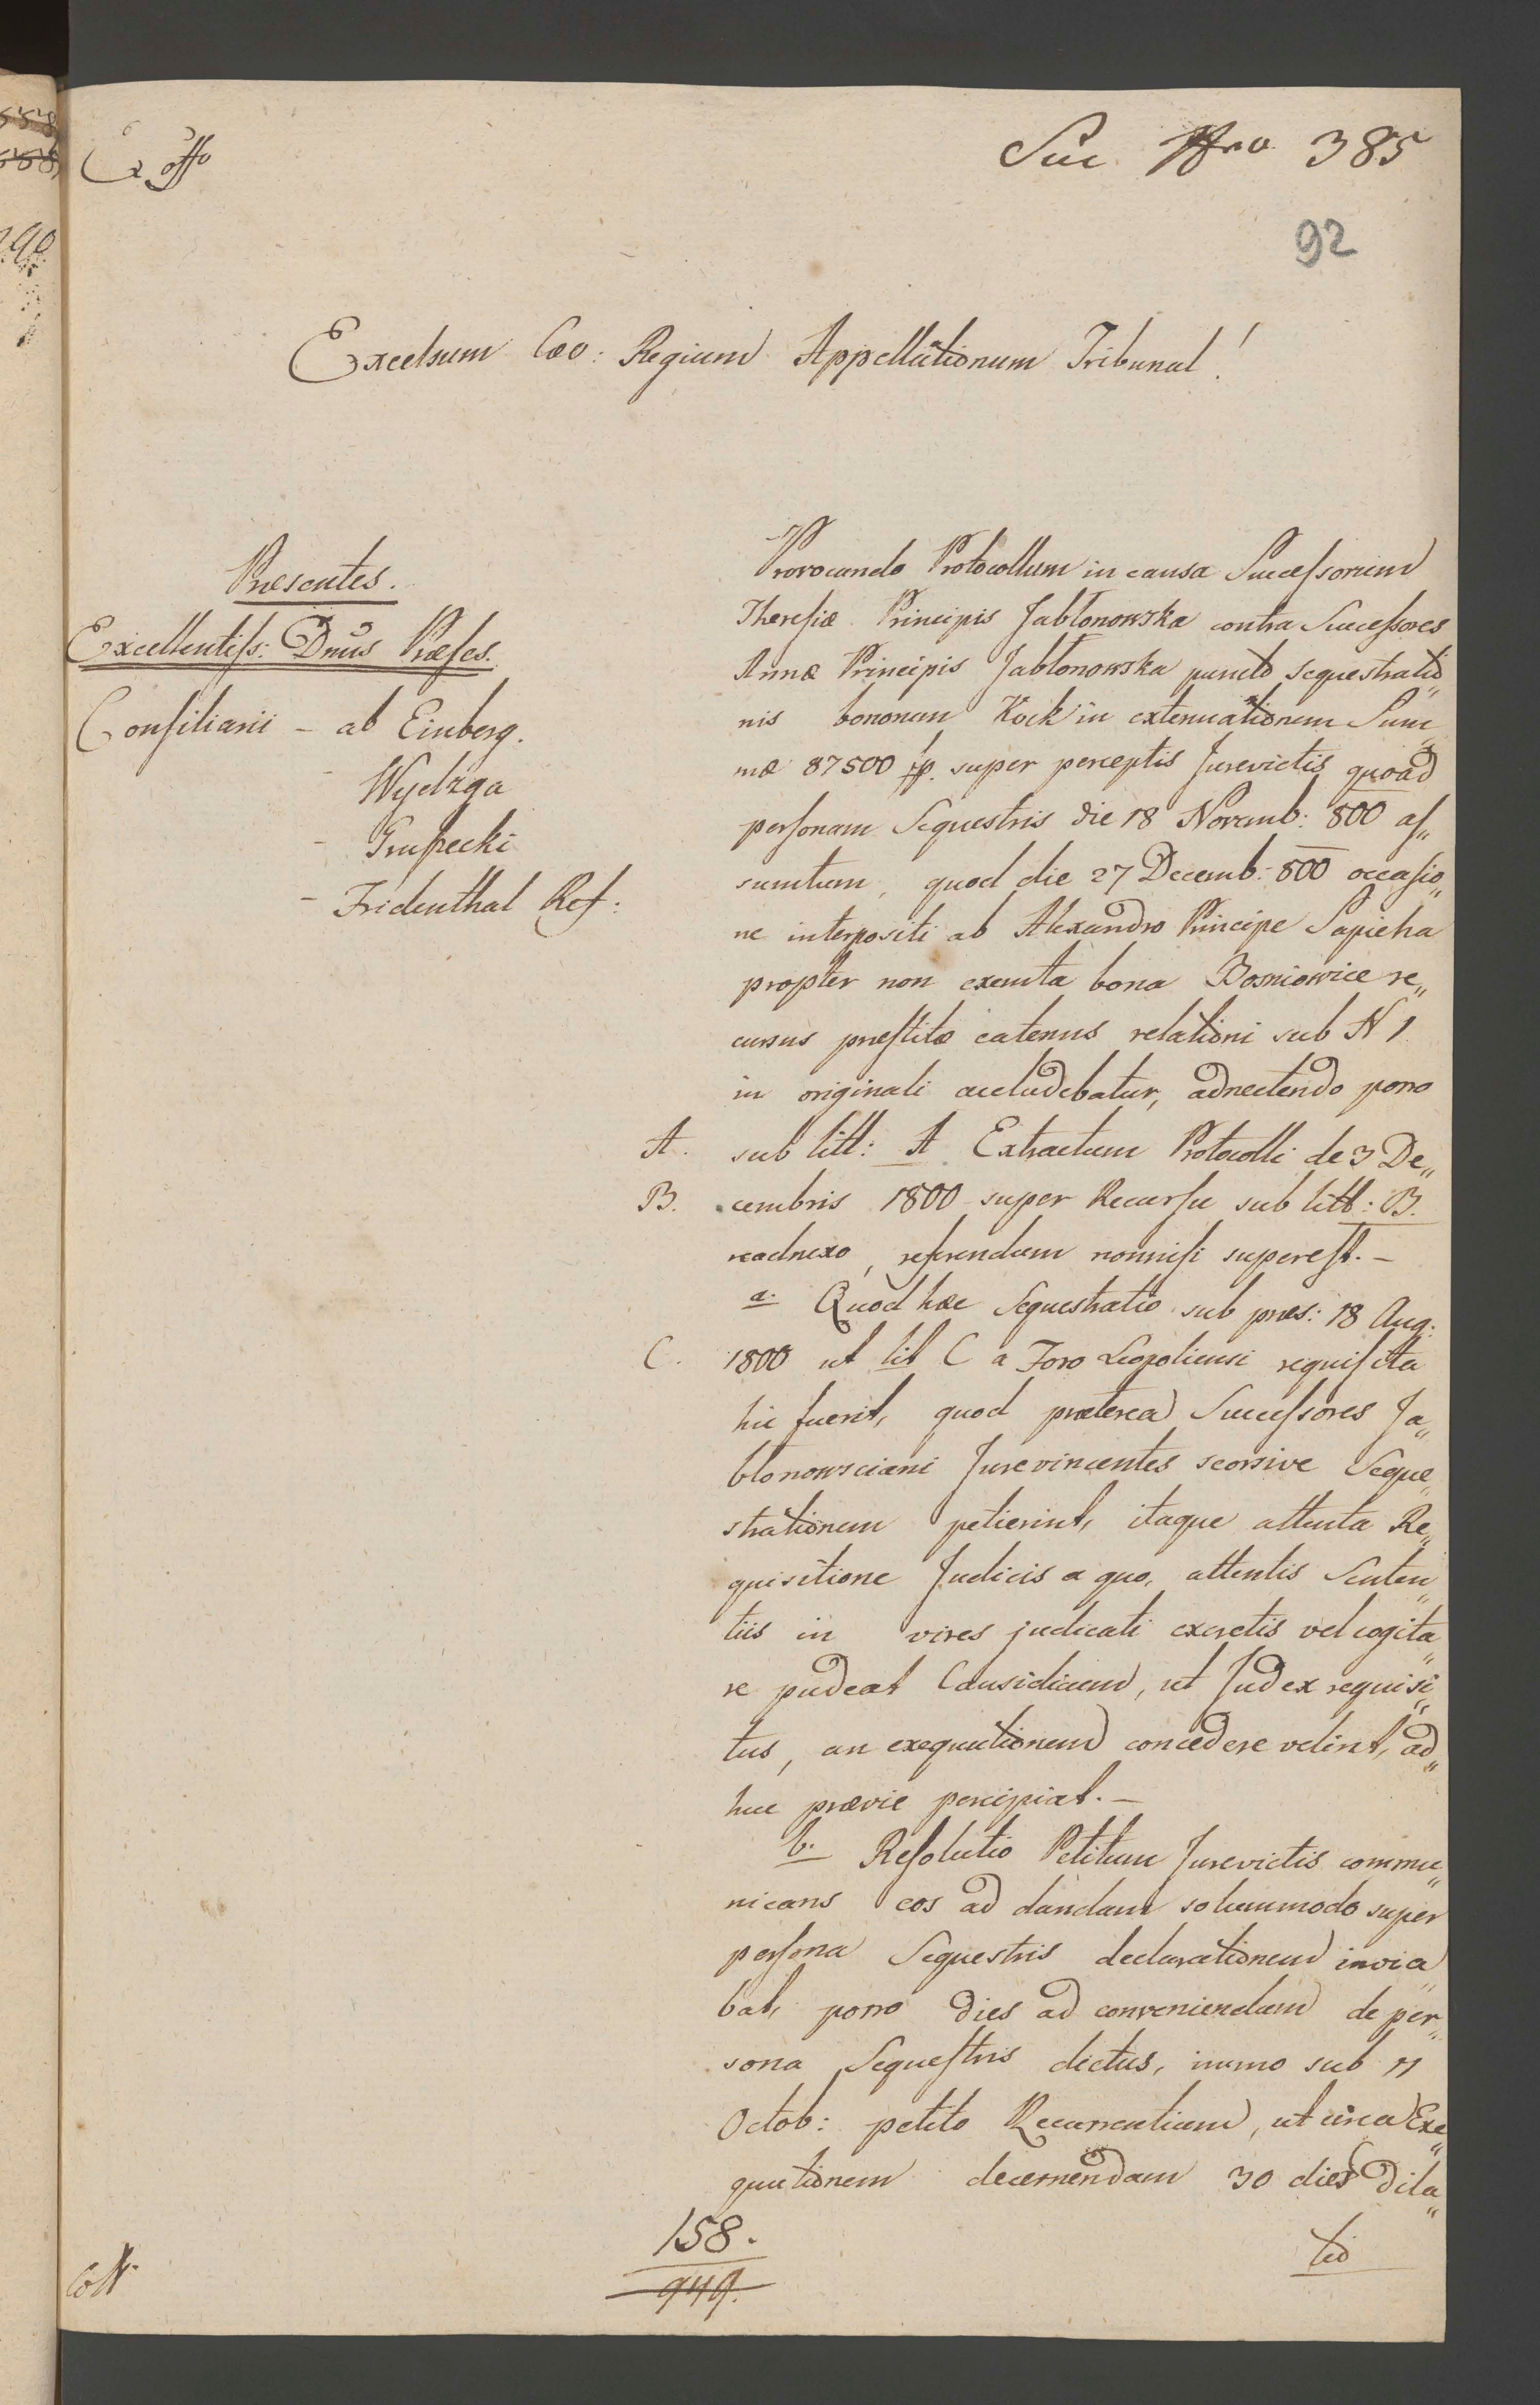 Ex offo
Suc Nro 385
92
Excelsum Cæo: Regium Appellationum Tribunal!
Præsentes.
Excellentiss: Dnus Præses.
Consiliarii - ab Einberg.
- Wydzga
- Grussecki
- Fridenthal Ref:
Provocando Protocollum in causa Successorum
Theresiæ Principis Jabłonowska contra Successores
Annæ Principis Jabłonowska puncto sequestratio„
nis bonorum Kock in extenuationem Sum„
mæ 87500 fp. super perceptis Jurevictis quoad
personam Sequestris die 18 Novemb: 800 as„
sumtum, quod die 27 Decemb: 800 occasio„
ne interpositi ab Alexandro Principe Sapieha
propter non exemta bona Bosniowice re„
cursus præstitæ eatenus relationi sub N 1
in originali accludebatur, adnectendo porro
A. sub litt: A Extractum Protocolli de 3 De„
B. cembris 1800 super Recursu sub litt: B.
readnexo, referendum nonnisi superest. –
a. Quod hæc Sequestratio sub præs: 18 Aug:
C. 1800 ut lit C a Foro Leopoliensi requisita
hic fuerit, quod præterea Successores Ja„
blonowsciani Jurevincentes seorsive Seque„
strationem petierint, itaque attenta Re„
quisitione Judicis a quo, attentis Senten„
tiis in vires judicati excretis vel cogita„
re pudeat Causidicum, ut Judex requisi„
tus, an exequutionem concedere velint, ad„
huc prævie percipiat. –
b. Resolutio Petitum Jurevictis commu„
nicans eos ad dandam solummodo super
persona Sequestris declarationem invia„
bat, porro dies ad conveniendum de per„
sona Sequestris dictus, immo sub 11
Octob: petito Recurrentium, ut circa Exe„
quutionem decernendam 30 dies dila„
tio
158.
949.
Coll